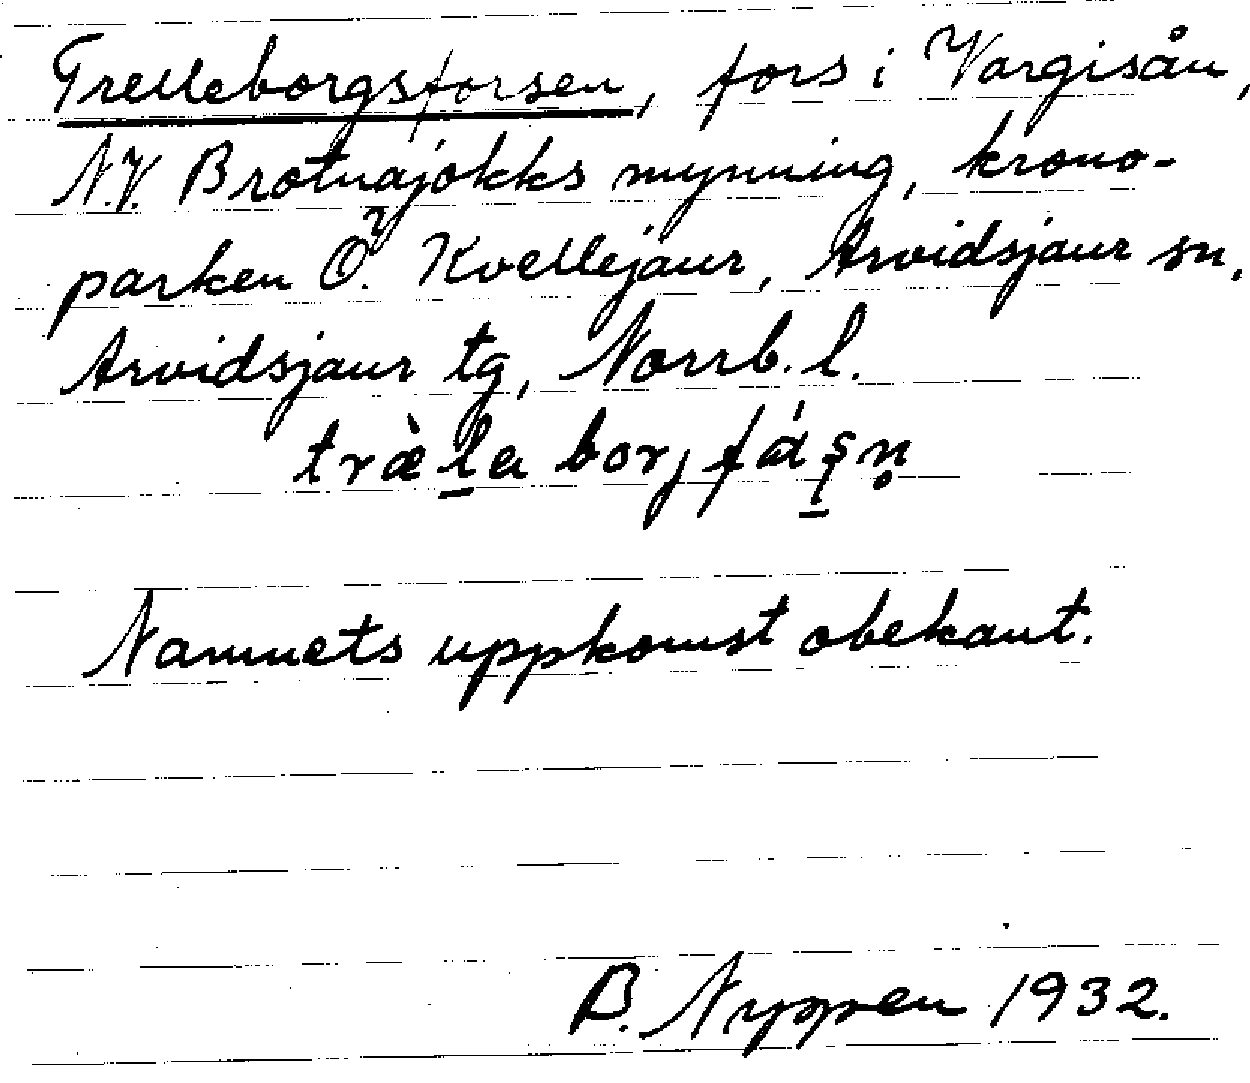 Trelleborgsforsen, fors i Vargisån,
N.V. Brotnajokks mynning, krono-
parken Ö. Kvellejaur, Arvidsjaur sn,
Arvidsjaur tg, Norrb. l.
træ̀l̲a borj fá̤ʂn̥
Namnets uppkomst obekant.
B. Nyppen 1932.